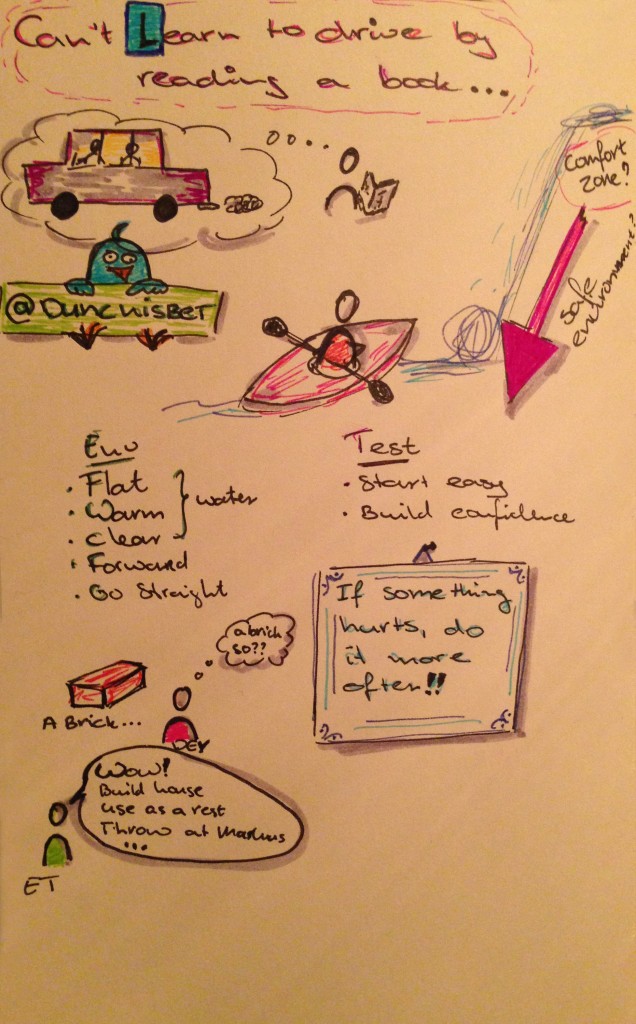 Can't Learn to drive by
reading a book...
Comfort
zone?
Safe
environment?
@DuncNisbet
Env
. Flat
. Warm
. Clear
} water
. Forward
. Go Straight
Test
. Start easy
. Build confidence
If something
hurts, do
it more
often!!
a brick
so??
A Brick...
DEV
Wow!
Build house
use as a rest
Throw at Markus
...
ET